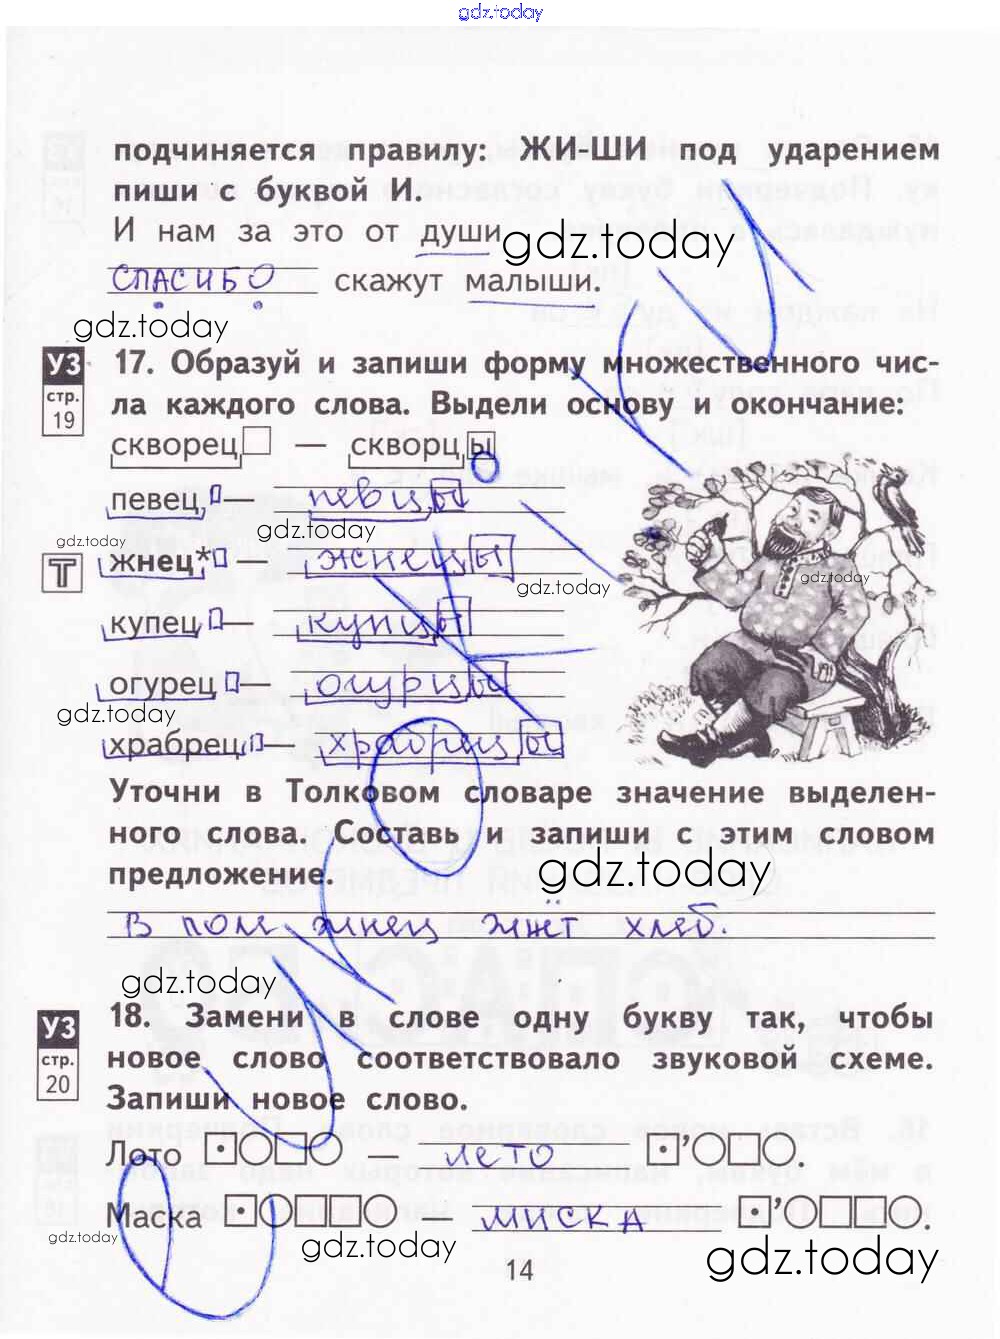 gdz.today
подчиняется правилу: ЖИ-ШИ под ударением
пиши с буквой И.
И нам за это от души
gdz.today
СПАСИБО скажут малыши.
gdz.today
УЗ
стр.
19
17. Образуй и запиши форму множественного чис-
ла каждого слова. Выдели основу и окончание:
скворец — скворцы
певец — певцы
gdz.today
gdz.today
Т
жнец* — жнецы
gdz.today
gdz.today
купец — купцы
огурец — огурцы
gdz.today
храбрец — храбрецы
Уточни в Толковом словаре значение выделен-
ного слова. Составь и запиши с этим словом
предложение.
gdz.today
В поле жнец жнёт хлеб.
gdz.today
УЗ
стр.
20
18. Замени в слове одну букву так, чтобы
новое слово соответствовало звуковой схеме.
Запиши новое слово.
Лото — лето
Маска — миска
gdz.today
gdz.today
gdz.today
14